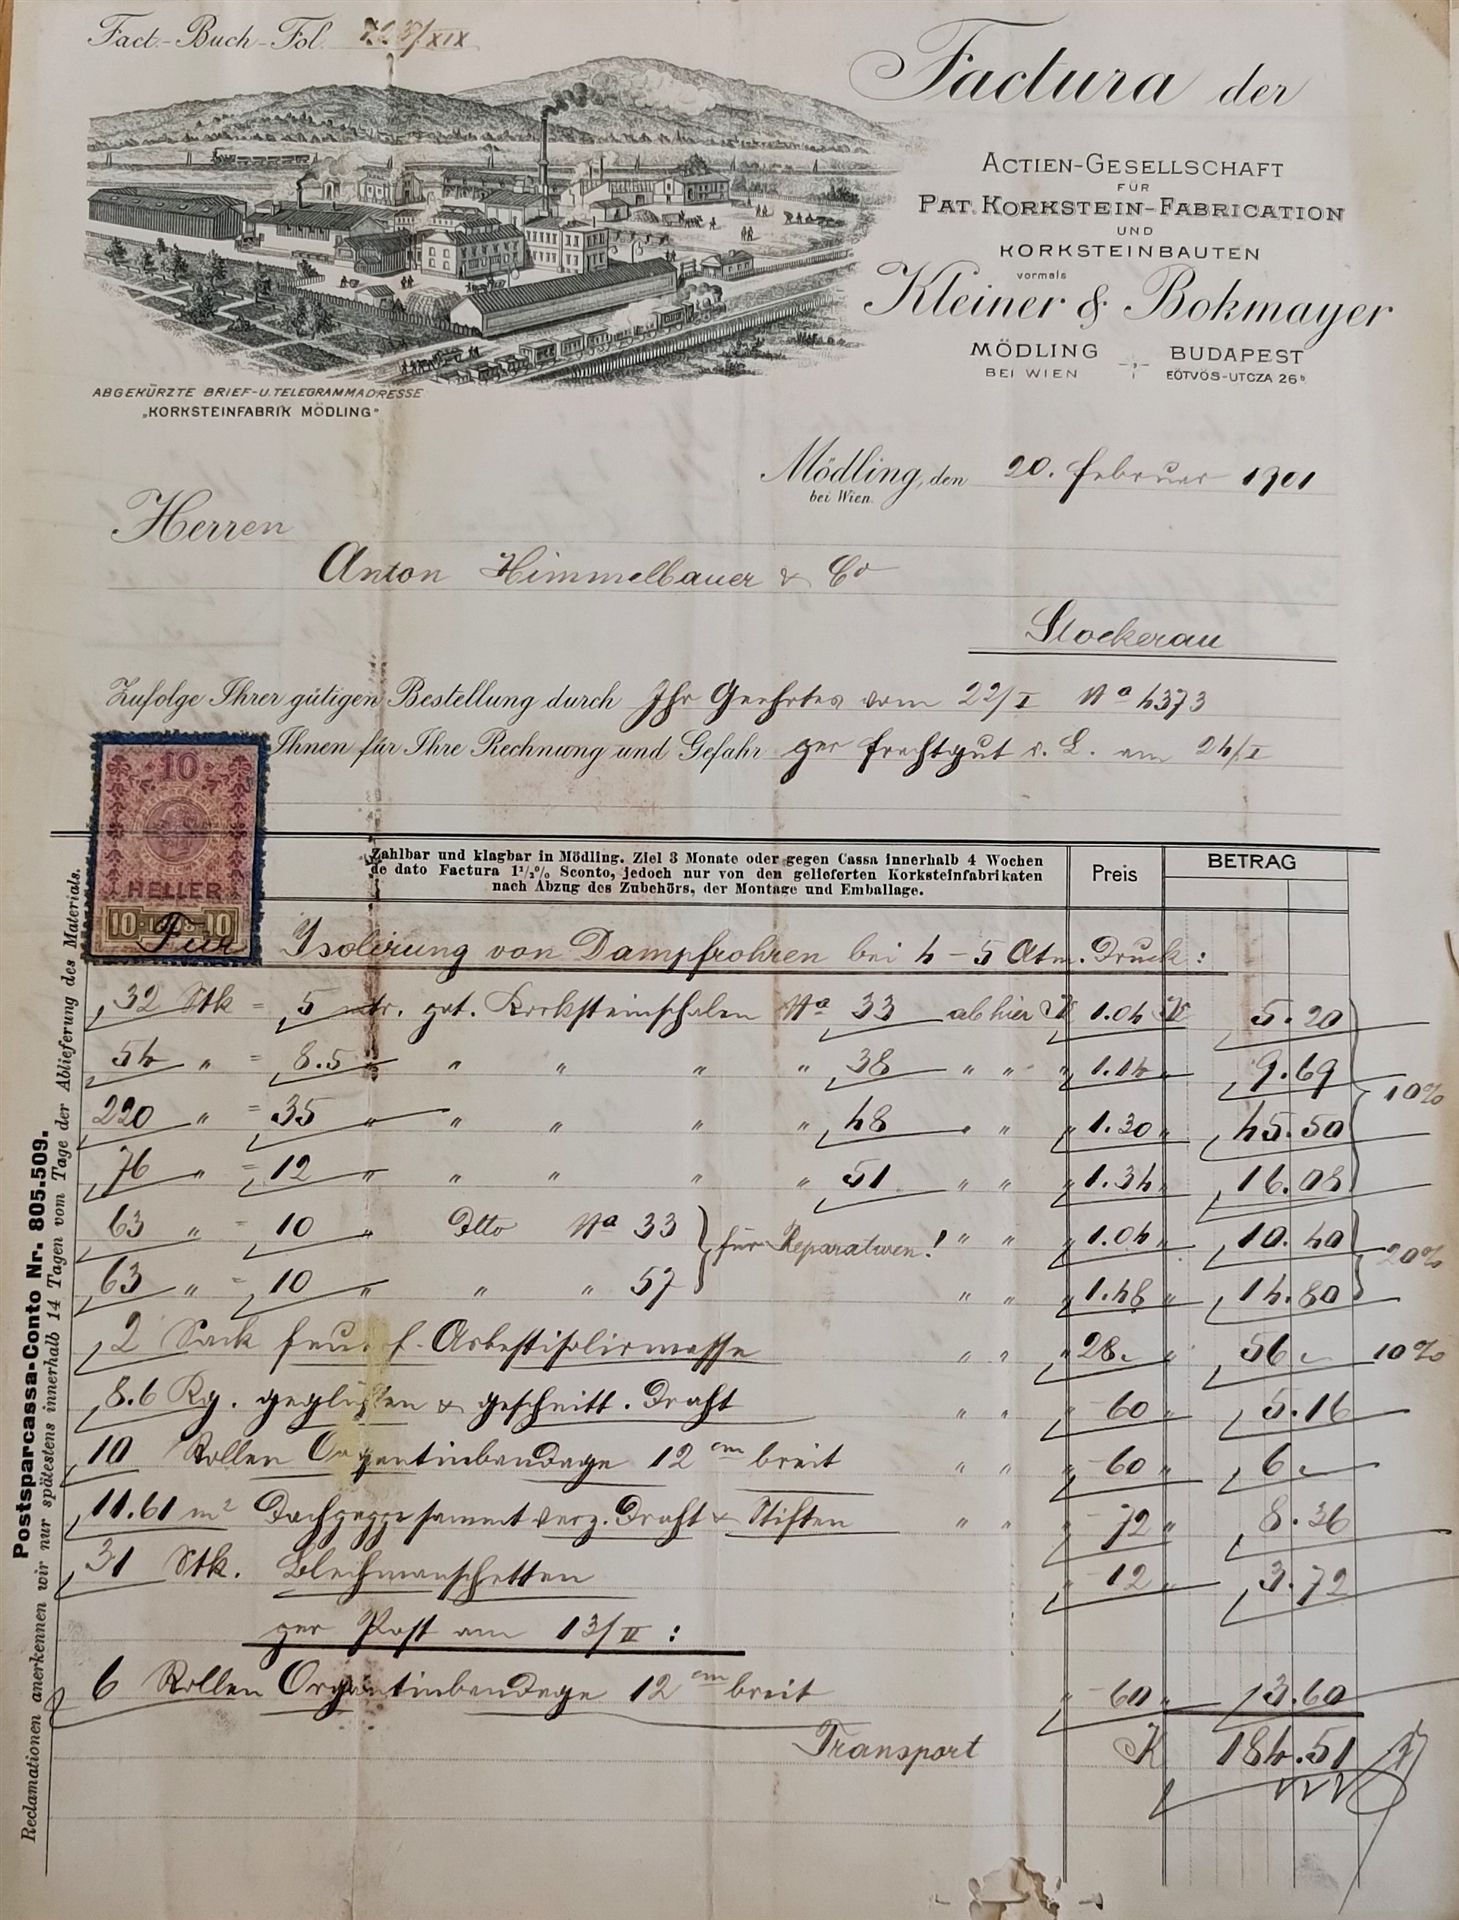 Fact.-Buch-Fol. /XIX
Factura der
ACTIEN-GESELLSCHAFT
FÜR
PAT. KORKSTEIN-FABRICATION
UND
KORKSTEINBAUTEN
vormals
Kleiner & Bokmayer
MÖDLING BUDAPEST
BEI WIEN EÖTVÖS-UTCZA 26ᵇ
ABGEKÜRZTE BRIEF-U. TELEGRAMMADRESSE
„KORKSTEINFABRIK MÖDLING"
Mödling, den 20. Februar 1901
bei Wien.
Herren
Anton Himmelbauer & Co
Stockerau
Zufolge Ihrer gütigen Bestellung durch Ihr Geehrtes vom 22/I Nº 4373
Ihnen für Ihre Rechnung und Gefahr per Frachtgut v. L. am 24/I
10
HELLER
10 10
Zahlbar und klagbar in Mödling. Ziel 3 Monate oder gegen Cassa innerhalb 4 Wochen
de dato Factura 1½% Sconto, jedoch nur von den gelieferten Korksteinfabrikaten
nach Abzug des Zubehörs, der Montage und Emballage.
Preis BETRAG
Für Isolirung von Dampfrohren bei 4-5 Atm. Druck:
32 Stk = 5 mtr. pat. Korksteinschalen Nº 33 ab hier K 1.04 K 5.20
54 " = 8.5 " " " " " 38 " " " 1.14 " 9.69
220 " = 35 " " " " " 48 " " " 1.30 " 45.50 10%
76 " = 12 " " " " " 51 " " " 1.34 " 16.08
63 " = 10 " Dtto Nº 33 für Reparaturen! " " " 1.04 " 10.40
63 " = 10 " " " 57 " " " 1.48 " 14.80 20%
2 Sack feuerf. Asbestisolirmasse " " " 28.- " 56.- 10%
8.6 Kg. geglühten & geschnitt. Draht " " " -60 " 5.16
10 Rollen Organtinbandage 12 cm breit " " " -60 " 6.-
11.61 m² Dachpappe sammt verz. Draht & Stiften " " " -72 " 8.36
31 Stk. Blechmanschetten " -12 " 3.72
per Post am 13/II:
6 Rollen Organtinbandage 12 cm breit " -60 " 3.60
Transport K 184.51
Postsparcassa-Conto Nr. 805.509.
Reclamationen anerkennen wir nur spätestens innerhalb 14 Tagen vom Tage der Ablieferung des Materials.